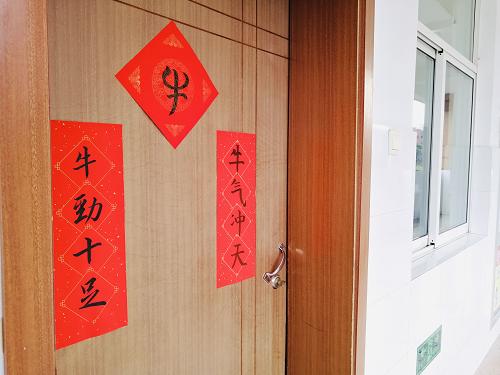 牛
牛气冲天
牛劲十足